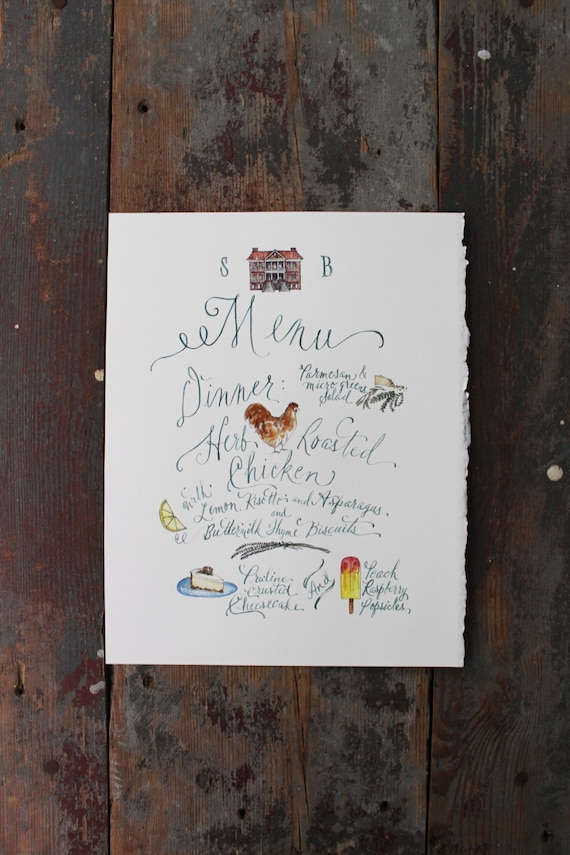 S B
Menu
Dinner:
Parmesan &
microgreens
Salad
Herb Roasted
Chicken
with
Lemon Risotto and Asparagus
and
Buttermilk Thyme Biscuits
Praline
Crusted
Cheesecake
And
Peach
Raspberry
Popsicles